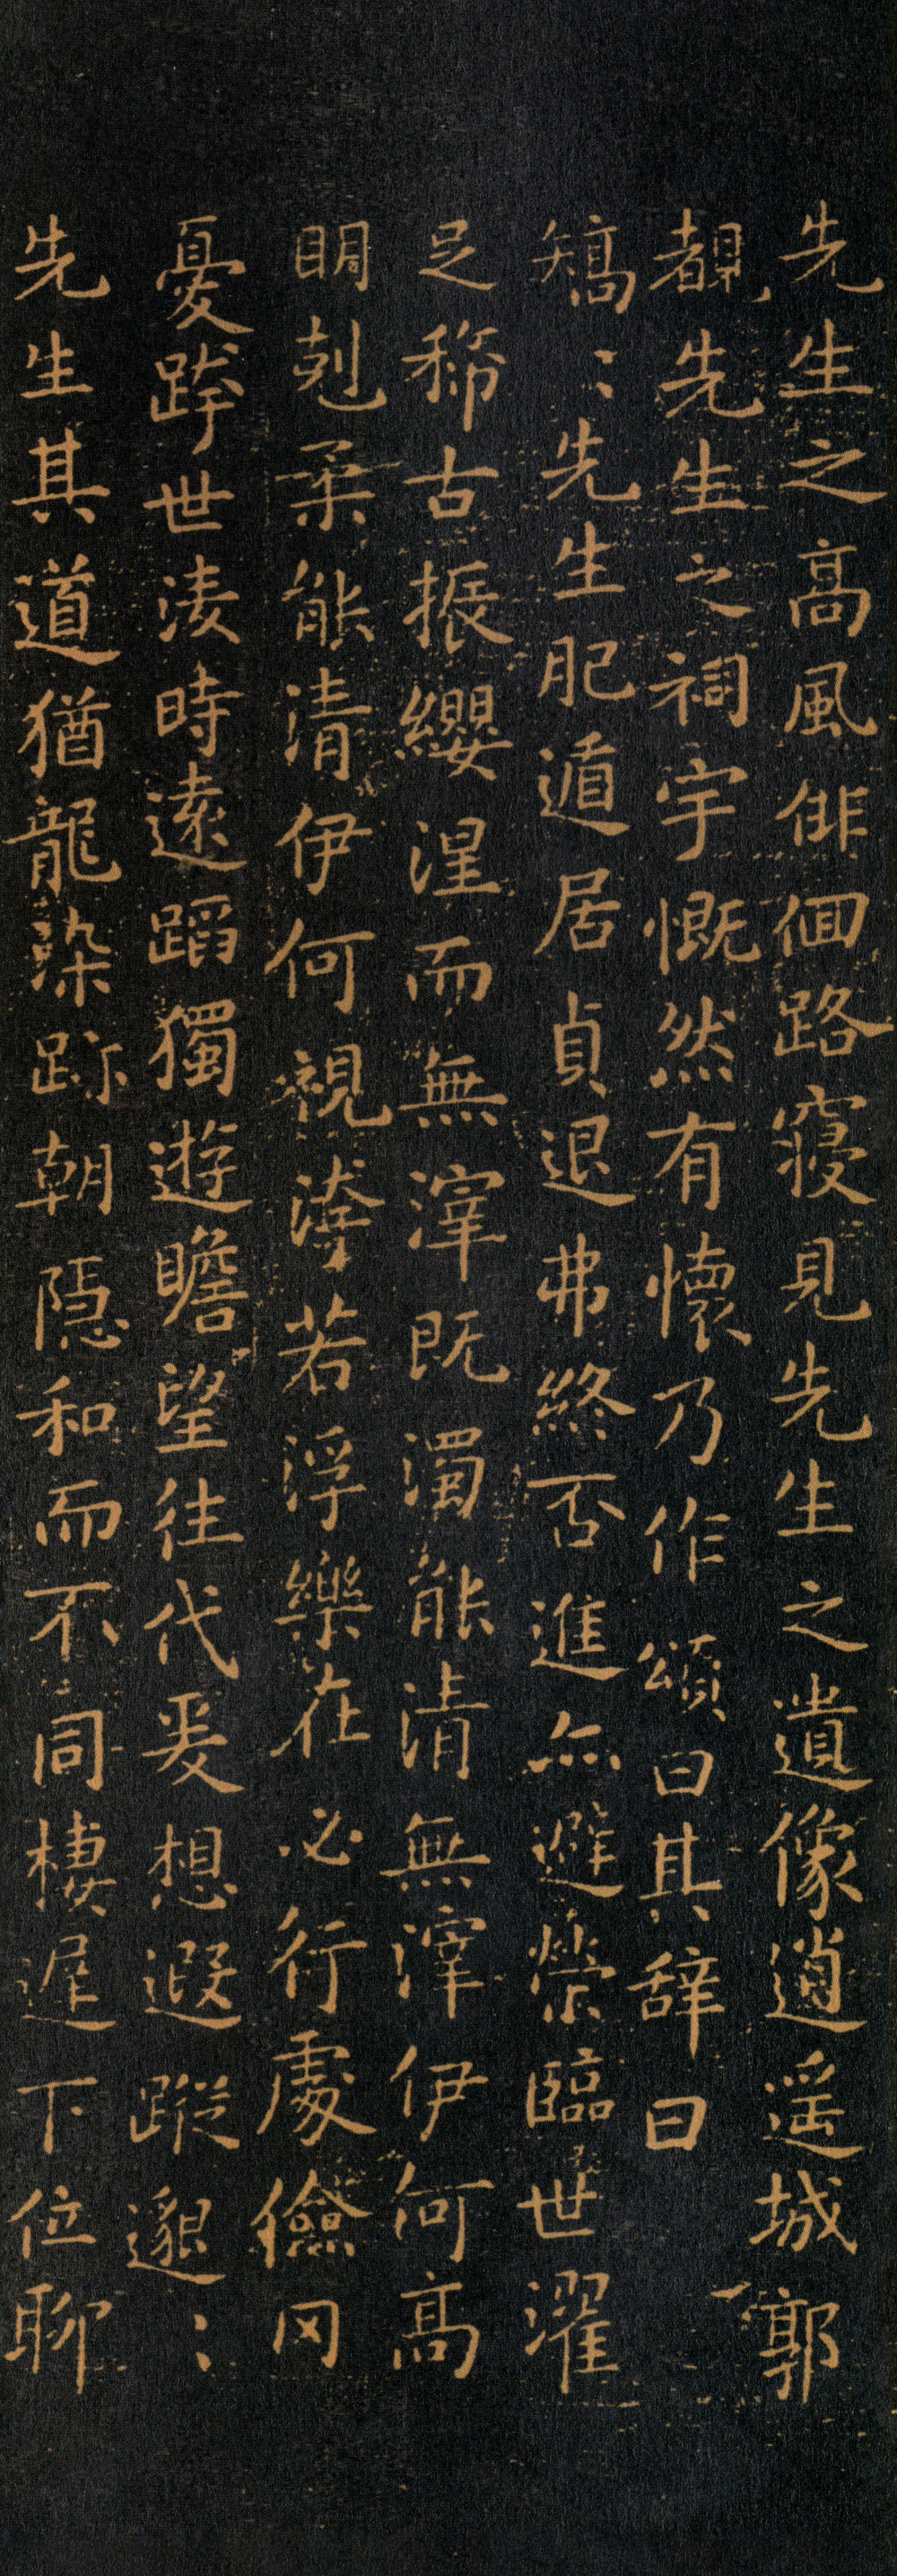 先生之高風俳佪路寢見先生之遺像逍遥城郭
覩先生之祠宇慨然有懷乃作頌曰其辞曰
矯〻先生肥遁居貞退弗終否進亦避榮臨世濯
足稀古振纓涅而無滓既濁能清無滓伊何高
明剋柔能清伊何視洿若浮樂在必行處儉罔
憂跨世淩時遠蹈獨遊瞻望往代爰想遐蹤邈〻
先生其道猶龍染跡朝隱和而不同棲遲下位聊